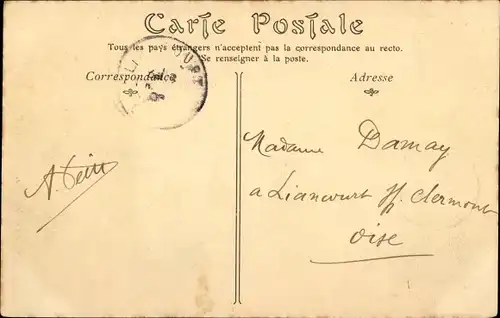 Carte Postale
Tous les pays étrangers n'acceptent pas la correspondance au recto.
Se renseigner à la poste.
Correspondance
Adresse
Madame Damay
a Liancourt
Clermont
Oise